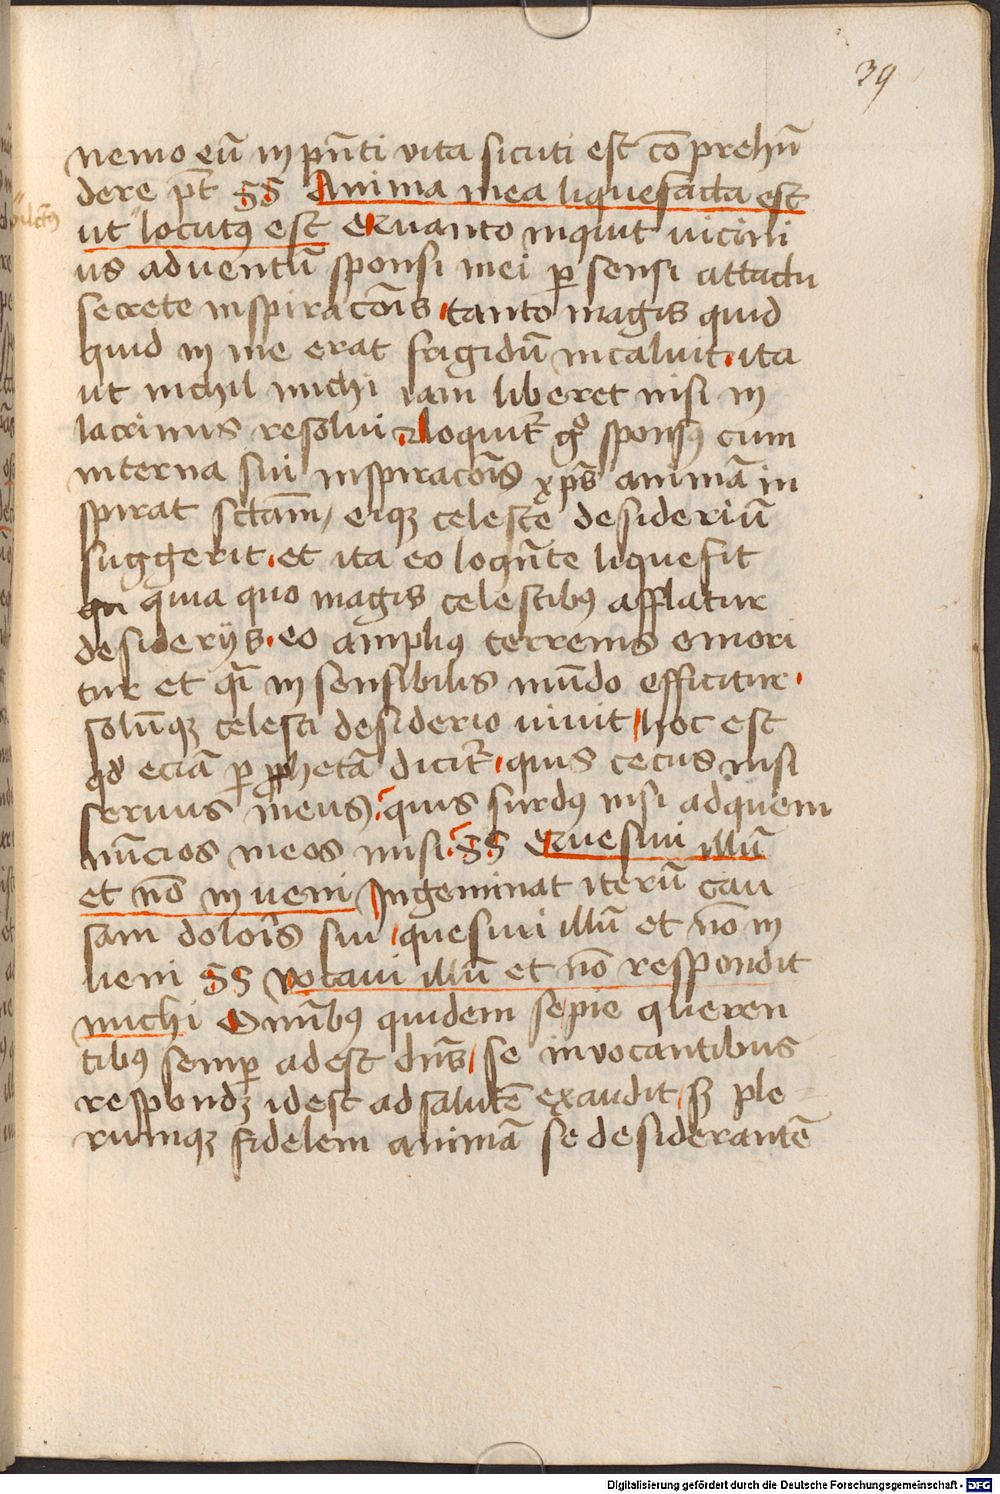 39
nemo eū in pn̄ti vita sicuti est cōprehn̄
dere pt̄ §§ Anima mea liquefacta est
ut locutꝰ est Quanto inquit vicini
us adventū sponsi mei ꝑ sensi attactu
secrete inspiracōis tanto magis quid
quid in me erat frigidū incaluit ita
ut nichil michi iam liberet nisi in
lacrimis resolui loquit᷑ gͦ sponsꝰ cum
interna sui inspiracōis xp̄s animā in
spirat sctām, eiqꝫ celeste desideriū
suggerit et ita eo loqn̄te liquefit
qn quia quo magis celestibꝰ afflatur
desideriis eo ampliꝰ terrenis emori
tur et qͣi insensibilis mūdo efficitur
solūqꝫ celesti desiderio uiuit hoc est
qd̓ eciā ꝑ ꝓphetā dicit᷑ quis cecus nisi
seruus meus, quis surdꝰ nisi ad quem
nūcios meos misi §§ Quesiui illū
et nō inueni Ingeminat iterū cau
sam dolor̄is sui quesiui illū et nō in
ueni §§ vocaui illū et nō respondit
michi Omībꝰ quidem se pie queren
tibꝰ semꝑ adest dn̄s se invocantibus
respondꝫ idest ad salutē exaudit sꝫ ple
rumqꝫ fidelem animā se desiderantē
Digitalisierung gefördert durch die Deutsche Forschungsgemeinschaft - DFG